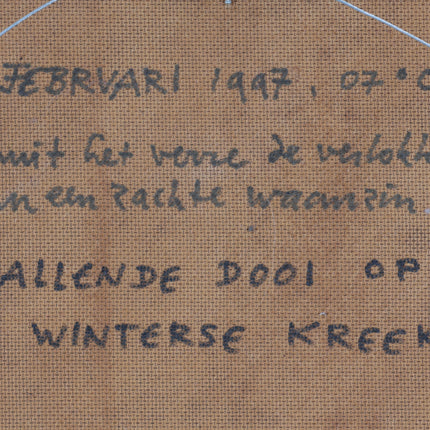 FEBRUARI 1997, 07°C
uit het verre de verlokk
een zachte waanzin
ALLENDE DOOI OP
WINTERSE KREEK